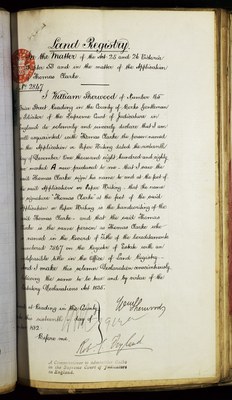 Land Registry.
In the Matter of the Act 25 and 26 Victoria
Chapter 53 and in the matter of the Application
Thomas Clarke.
No. 2847
I William Sherwood of Number 165
Friar Street Reading in the County of Berks Gentleman
a Solicitor of the Supreme Court of Judicature in
England do solemnly and sincerely declare that I am
well acquainted with Thomas Clarke the person named
in the Application in Paper Writing dated the nineteenth
day of December One thousand eight hundred and eighty
one marked A now produced to me that I saw the
said Thomas Clarke sign his name to and at the foot of
the said Application or Paper Writing, that the name
or signature Thomas Clarke at the foot of the said
Application or Paper Writing is the handwriting of the
said Thomas Clarke and that the said Thomas
Clarke is the same person as Thomas Clarke who
named in the Record of Title of the hereditaments
numbered 2847 on the Register of Estates with an
indefeasible title in the Office of Land Registry
And I make this solemn Declaration conscientiously
believing the same to be true and by virtue of the
Statutory Declarations Act 1835.
at Reading in the County
the nineteenth day of
1882
Wm Sherwood
Before me,
A Commissioner to administer Oaths
in the Supreme Court of Judicature
in England.